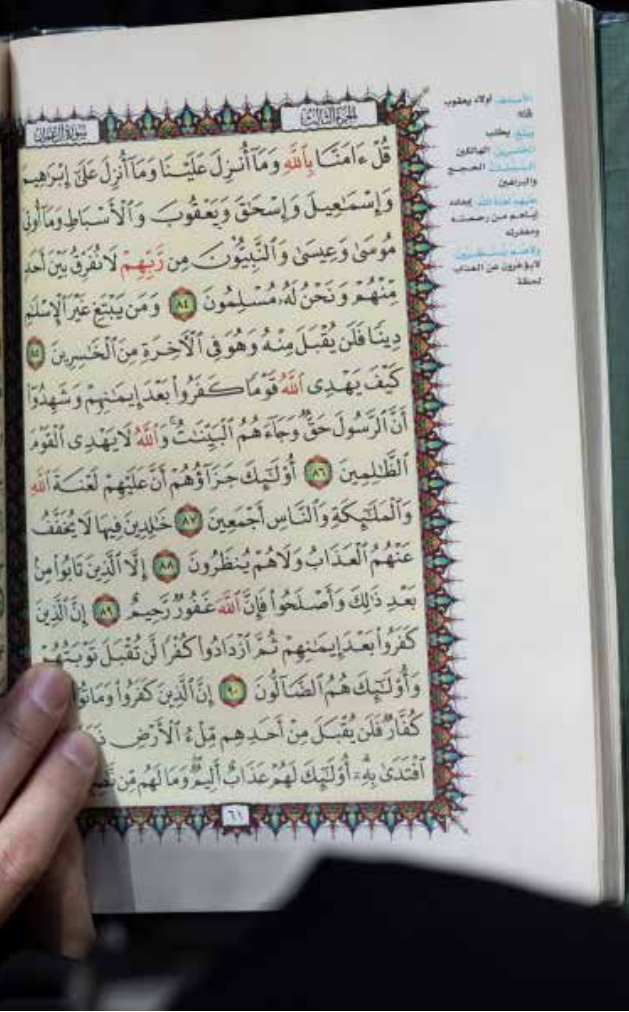 الجزء الثالث
سورة آل عمران
قُلْ ءَامَنَّا بِٱللَّهِ وَمَآ أُنزِلَ عَلَيْنَا وَمَآ أُنزِلَ عَلَىٰٓ إِبْرَٰهِيمَ
وَإِسْمَٰعِيلَ وَإِسْحَٰقَ وَيَعْقُوبَ وَٱلْأَسْبَاطِ وَمَآ أُوتِىَ
مُوسَىٰ وَعِيسَىٰ وَٱلنَّبِيُّونَ مِن رَّبِّهِمْ لَا نُفَرِّقُ بَيْنَ أَحَدٍ
مِّنْهُمْ وَنَحْنُ لَهُۥ مُسْلِمُونَ ٨٤ وَمَن يَبْتَغِ غَيْرَ ٱلْإِسْلَٰمِ
دِينًا فَلَن يُقْبَلَ مِنْهُ وَهُوَ فِى ٱلْآخِرَةِ مِنَ ٱلْخَٰسِرِينَ ٨٥
كَيْفَ يَهْدِى ٱللَّهُ قَوْمًا كَفَرُوا۟ بَعْدَ إِيمَٰنِهِمْ وَشَهِدُوٓا۟
أَنَّ ٱلرَّسُولَ حَقٌّ وَجَآءَهُمُ ٱلْبَيِّنَٰتُ ۚ وَٱللَّهُ لَا يَهْدِى ٱلْقَوْمَ
ٱلظَّٰلِمِينَ ٨٦ أُو۟لَٰٓئِكَ جَزَآؤُهُمْ أَنَّ عَلَيْهِمْ لَعْنَةَ ٱللَّهِ
وَٱلْمَلَٰٓئِكَةِ وَٱلنَّاسِ أَجْمَعِينَ ٨٧ خَٰلِدِينَ فِيهَا لَا يُخَفَّفُ
عَنْهُمُ ٱلْعَذَابُ وَلَا هُمْ يُنظَرُونَ ٨٨ إِلَّا ٱلَّذِينَ تَابُوا۟ مِنۢ
بَعْدِ ذَٰلِكَ وَأَصْلَحُوا۟ فَإِنَّ ٱللَّهَ غَفُورٌ رَّحِيمٌ ٨٩ إِنَّ ٱلَّذِينَ
كَفَرُوا۟ بَعْدَ إِيمَٰنِهِمْ ثُمَّ ٱزْدَادُوا۟ كُفْرًا لَّن تُقْبَلَ تَوْبَتُهُمْ
وَأُو۟لَٰٓئِكَ هُمُ ٱلضَّآلُّونَ ٩٠ إِنَّ ٱلَّذِينَ كَفَرُوا۟ وَمَاتُوا۟
كُفَّارٌ فَلَن يُقْبَلَ مِنْ أَحَدِهِم مِّلْءُ ٱلْأَرْضِ
ٱفْتَدَىٰ بِهِۦٓ ۗ أُو۟لَٰٓئِكَ لَهُمْ عَذَابٌ أَلِيمٌ وَمَا لَهُم مِّن
٦١
الأسباط: أولاد يعقوب
يبتغ: يطلب
الخاسرين: الهالكين
البينات: الحجج
والبراهين
عليهم لعنة الله: إبعاده
إياهم من رحمته
ومغفرته
ولا هم ينظرون:
لايؤخرون عن العذاب
لحظة